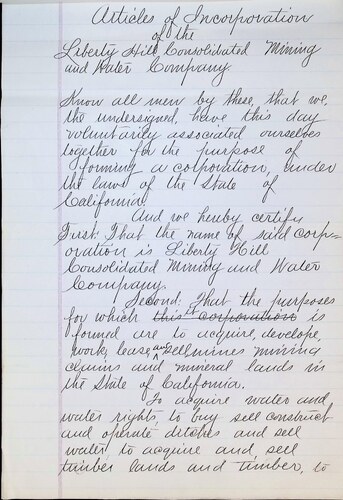 Articles of Incorporation
of the
Liberty Hill Consolidated Mining
and Water Company
Know all men by these, that we,
the undersigned, have this day
voluntarily associated ourselves
together for the purpose of
forming a corporation, under
the laws of the State of
California.
And we hereby certify
First: That the name of said corp-
oration is Liberty Hill
Consolidated Mining and Water
Company.
Second: That the purposes
for which this corporation is
formed are to acquire, develope,
work, lease, and sell, mines mining
claims and mineral lands in
the State of California.
To acquire water and
water rights, to buy sell construct
and operate ditches and sell
water, to acquire and, sell
timber lands and timber, to